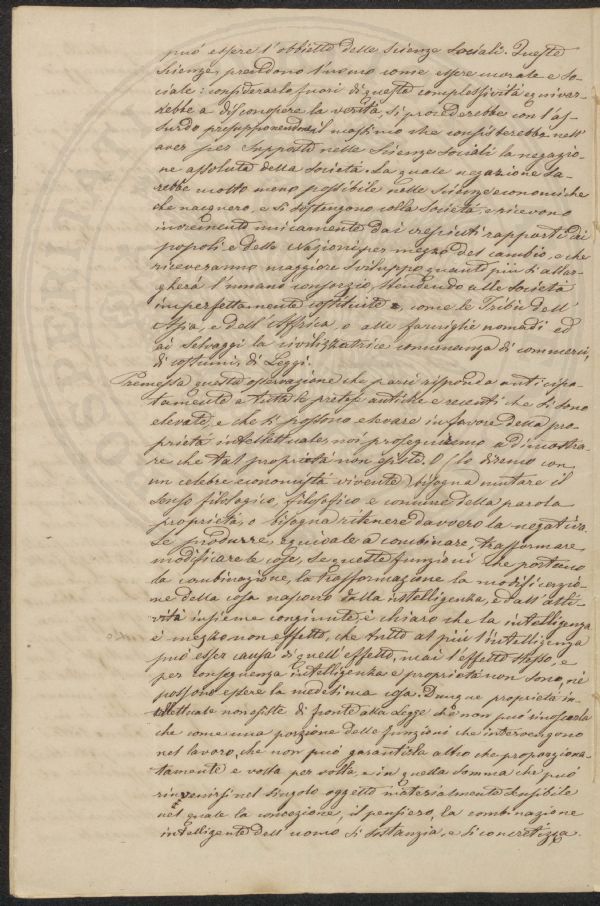 può essere l'obbietto delle Scienze Sociali. Queste
Scienze, prendono l'uomo come essere morale e so-
ciale: considerarlo fuori di questa complessività equivar-
rebbe a disconoscere la verità, si procederebbe con l'as-
surdo presupponendo il massimo che consisterebbe nell'
aver per supposto nelle Scienze Sociali la negazio-
ne assoluta della Società. La quale negazione sa-
rebbe molto meno possibile nelle Scienze economiche
che nacquero, e si sostengono colla Società, e ricevono
incremento unicamente dai cresciuti rapporti dei
popoli e delle Nazioni per mezzo del cambio, e che
riceveranno maggiore sviluppo quanto più si allar-
gherà l'umano consorzio, stendendo alle Società
imperfettamente costituite, come le Tribù dell'
Asia, e dell'Affrica, e alle famiglie nomadi ed
ai selvaggi la civilizzatrice comunanza di commerci,
di costumi, di Leggi.
Premessa questa osservazione che parci risponda anticipa-
tamente a tutte le pretese antiche e recenti che si sono
elevate, e che si possono elevare in favore della pro-
prietà intellettuale, noi proseguiremo a dimostra-
re che tal proprietà non esiste. O (lo diremo con
un celebre economista vivente) bisogna mutare il
senso filologico, filosofico e comune della parola
proprietà, o bisogna ritenere davvero la negativa.
Se produrre, equivale a combinare, trasformare,
modificare le cose, se queste funzioni che portano
la combinazione, la trasformazione la modificazio-
ne della cosa nascono dalla intelligenza, e dall'atti-
vità insieme congiunte, è chiaro che la intelligenza
è mezzo non effetto, che tutto al più l'intelligenza
può esser causa di quell'effetto, mai l'effetto stesso, e
per conseguenza intelligenza e proprietà non sono, nè
possono essere la medesima cosa. Dunque proprietà in-
tellettuale non esiste di fronte alla Legge che non può riconoscerla
che come una porzione delle funzioni che intervengono
nel lavoro, che non può garantirla altro che proporziona-
tamente e volta per volta, e in quella somma che può
rinvenirsi nel singolo oggetto materialmente sensibile
nel quale la concezione, il pensiero, la combinazione
intelligente dell'uomo si sostanzia, e si concretizza.